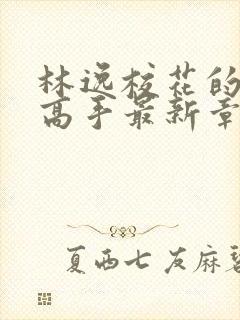 林逸校花的
高手最新章
夏西七 友麻